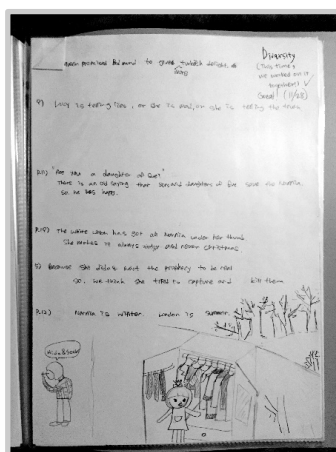 queen promised Edmund to give turkish delight.
Diversity
(This time,
we worked on it
together! ✓
Great! (11/23)
Lucy is telling lies, or she is mad, or she is telling the truth.
"Are you a daughter of Eve?"
There is an old saying that sons and daughters of Eve save the Narnia.
so he was happy.
The white witch has got all Narnia under her thumb
She makes it always winter and never Christmas
Because she didn't want the prophecy to be real
so, we think she tried to capture and kill them.
Narnia is winter. London is summer.
Hide & Seek!